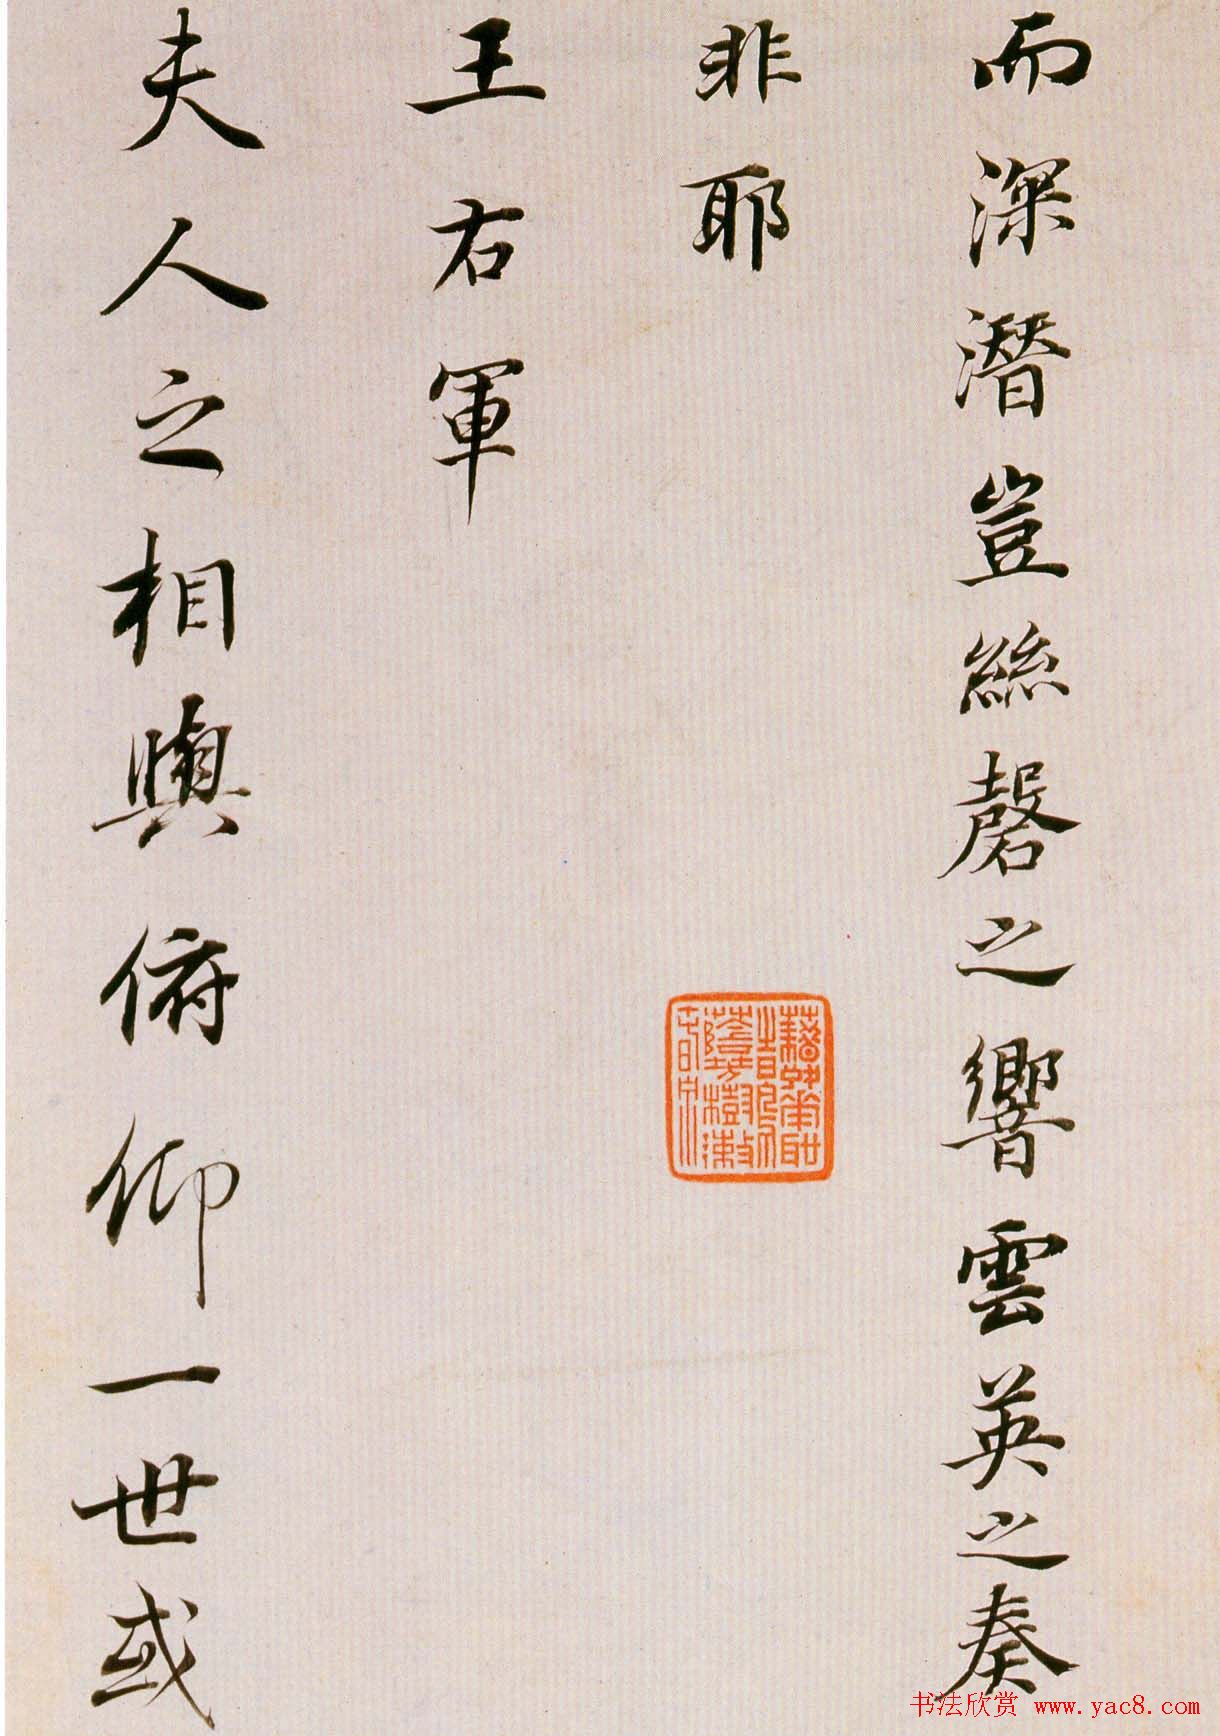 而深潛豈絲磬之響雲英之奏
非耶
王右軍
夫人之相與俯仰一世或
书法欣赏 www.yac8.com